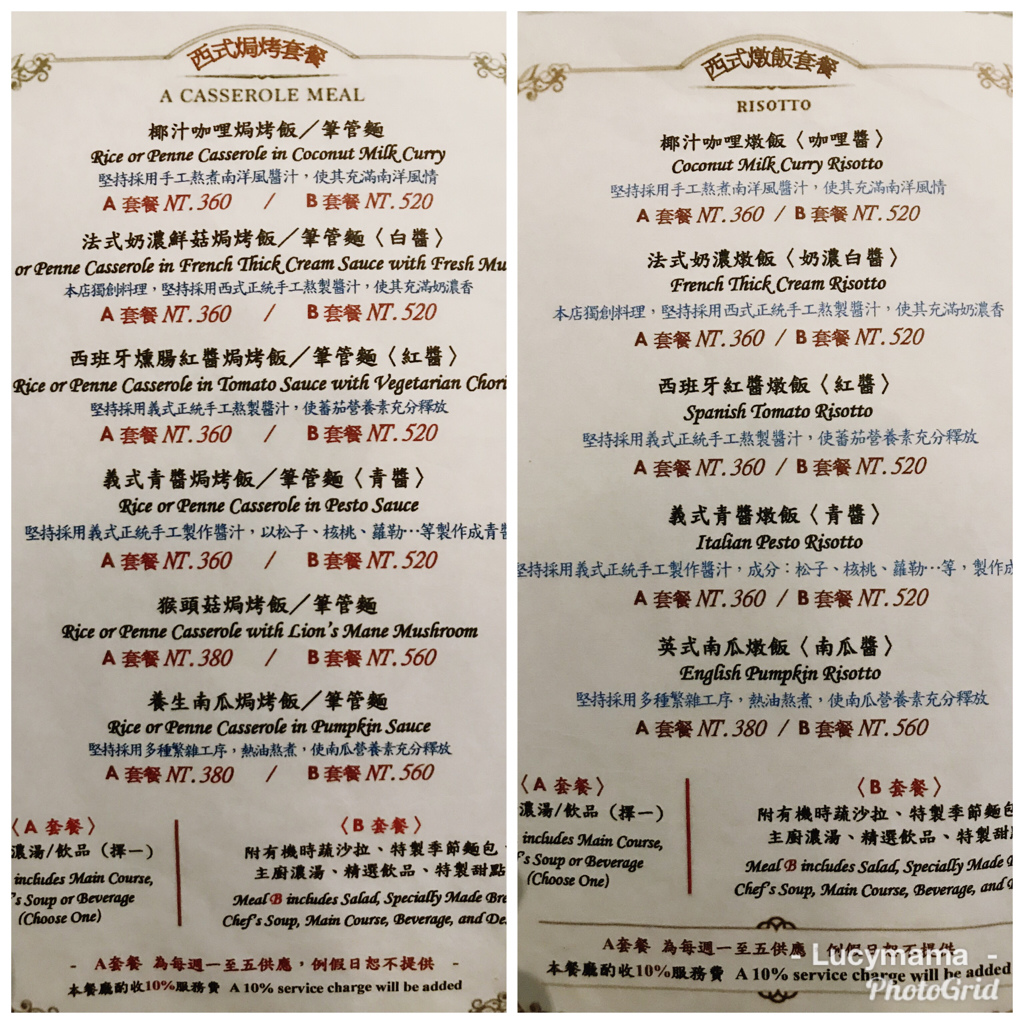 西式焗烤套餐
A CASSEROLE MEAL
椰汁咖哩焗烤飯／筆管麵
Rice or Penne Casserole in Coconut Milk Curry
堅持採用手工熬煮南洋風醬汁，使其充滿南洋風情
A 套餐 NT.360 / B 套餐 NT.520
法式奶濃鮮菇焗烤飯／筆管麵〈白醬〉
or Penne Casserole in French Thick Cream Sauce with Fresh Mu
本店獨創料理，堅持採用西式正統手工熬製醬汁，使其充滿奶濃香
A 套餐 NT.360 / B 套餐 NT.520
西班牙燻腸紅醬焗烤飯／筆管麵〈紅醬〉
Rice or Penne Casserole in Tomato Sauce with Vegetarian Chori
堅持採用義式正統手工熬製醬汁，使蕃茄營養素充分釋放
A 套餐 NT.360 / B 套餐 NT.520
義式青醬焗烤飯／筆管麵〈青醬〉
Rice or Penne Casserole in Pesto Sauce
堅持採用義式正統手工製作醬汁，以松子、核桃、蘿勒…等製作成青醬
A 套餐 NT.360 / B 套餐 NT.520
猴頭菇焗烤飯／筆管麵
Rice or Penne Casserole with Lion's Mane Mushroom
A 套餐 NT.380 / B 套餐 NT.560
養生南瓜焗烤飯／筆管麵
Rice or Penne Casserole in Pumpkin Sauce
堅持採用多種繁雜工序，熱油熬煮，使南瓜營養素充分釋放
A 套餐 NT.380 / B 套餐 NT.560
〈A 套餐〉
濃湯/飲品（擇一）
includes Main Course,
's Soup or Beverage
(Choose One)
〈B 套餐〉
附有機時蔬沙拉、特製季節麵包
主廚濃湯、精選飲品、特製甜點
Meal B includes Salad, Specially Made Bre
Chef's Soup, Main Course, Beverage, and De
- A套餐 為每週一至五供應，例假日恕不提供 -
本餐廳酌收10%服務費 A 10% service charge will be added
西式燉飯套餐
RISOTTO
椰汁咖哩燉飯〈咖哩醬〉
Coconut Milk Curry Risotto
堅持採用手工熬煮南洋風醬汁，使其充滿南洋風情
A 套餐 NT.360 / B 套餐 NT.520
法式奶濃燉飯〈奶濃白醬〉
French Thick Cream Risotto
本店獨創料理，堅持採用西式正統手工熬製醬汁，使其充滿奶濃香
A 套餐 NT.360 / B 套餐 NT.520
西班牙紅醬燉飯〈紅醬〉
Spanish Tomato Risotto
堅持採用義式正統手工熬製醬汁，使蕃茄營養素充分釋放
A 套餐 NT.360 / B 套餐 NT.520
義式青醬燉飯〈青醬〉
Italian Pesto Risotto
堅持採用義式正統手工製作醬汁，成分：松子、核桃、蘿勒…等，製作成
A 套餐 NT.360 / B 套餐 NT.520
英式南瓜燉飯〈南瓜醬〉
English Pumpkin Risotto
堅持採用多種繁雜工序，熱油熬煮，使南瓜營養素充分釋放
A 套餐 NT.380 / B 套餐 NT.560
〈A 套餐〉
濃湯/飲品（擇一）
includes Main Course,
's Soup or Beverage
(Choose One)
〈B 套餐〉
附有機時蔬沙拉、特製季節麵包
主廚濃湯、精選飲品、特製甜
Meal B includes Salad, Specially Made
Chef's Soup, Main Course, Beverage, and
A套餐 為每週一至五供應 例假日恕不提供
本餐廳酌收10%服務費 A 10% service charge will be added
- Lucymama -
PhotoGrid